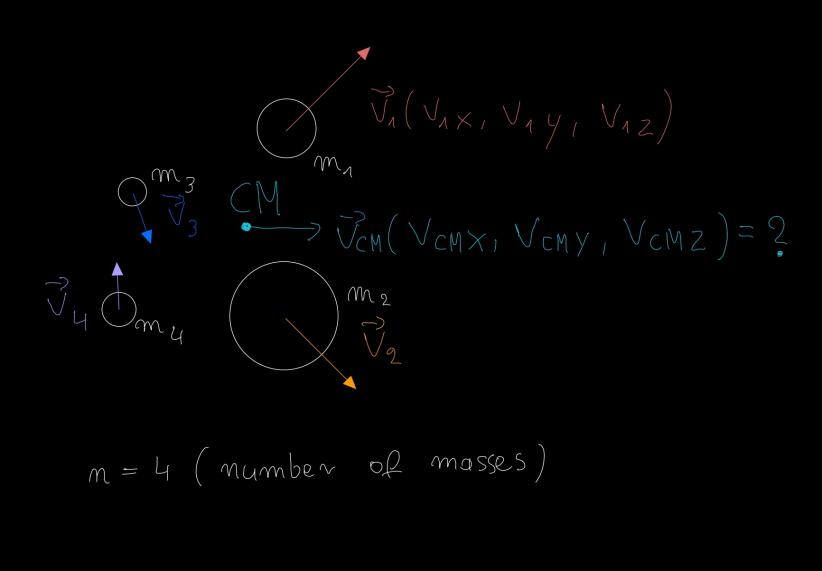 V⃗₁(V₁x, V₁y, V₁z)
m₁
m₃
V⃗₃
CM
V⃗CM(VCMX, VCMY, VCMZ) = ?
V⃗₄
m₄
m₂
V⃗₂
n = 4 (number of masses)